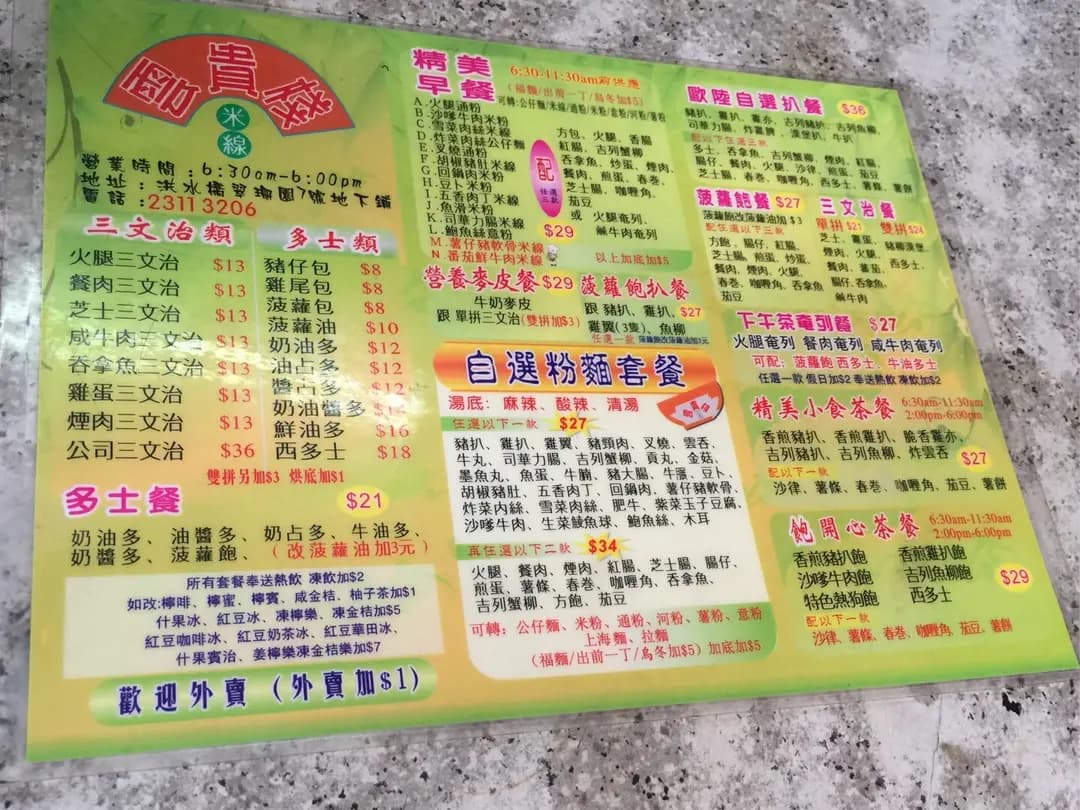 雲貴棧
米線
營業時間：6:30am-6:00pm
地址：洪水橋翠珊園7號地下舖
電話：2311 3206
三文治類
火腿三文治 $13
餐肉三文治 $13
芝士三文治 $13
咸牛肉三文治 $13
吞拿魚三文治 $13
雞蛋三文治 $13
煙肉三文治 $13
公司三文治 $36
多士類
豬仔包 $8
雞尾包 $8
菠蘿包 $8
菠蘿油 $10
奶油多 $12
油占多 $12
醬占多 $12
奶油醬多
鮮油多 $16
西多士 $18
雙拼另加$3 烘底加$1
多士餐 $21
奶油多、油醬多、奶占多、牛油多、
奶醬多、菠蘿飽、（改菠蘿油加3元）
所有套餐奉送熱飲 凍飲加$2
如改:檸啡、檸蜜、檸賓、咸金桔、柚子茶加$1
什果冰、紅豆冰、凍檸樂、凍金桔加$5
紅豆咖啡冰、紅豆奶茶冰、紅豆華田冰、
什果賓治、姜檸樂凍金桔樂加$7
歡迎外賣（外賣加$1）
精美早餐 6:30-11:30am前供應
（福麵/出前一丁/烏冬加$5）
可轉:公仔麵/米線/通粉/米粉/意粉/河粉/薯粉
A.火腿通粉
B.沙嗲牛肉米粉
C.雪菜肉絲米線
D.炸菜肉絲公仔麵
E.叉燒通粉
F.胡椒豬肚米線
G.回鍋肉米粉
H.豆卜米粉
I.五香肉丁米線
J.魚滑米粉
K.司華力腸米線
L.鮑魚絲意粉
M.薯仔豬軟骨米線
N.番茄鮮牛肉米線
配
任選三款
$29
方包、火腿、香腸
紅腸、吉列蟹柳
吞拿魚、炒蛋、煙肉、
餐肉、煎蛋、春卷、
芝士腸、咖喱角、
茄豆
或 火腿奄列、
鹹牛肉奄列
以上加底加$5
營養麥皮餐 $29
牛奶麥皮
跟 單拼三文治(雙拼加$3)
菠蘿飽扒餐
跟 豬扒、雞扒、 $27
雞翼(3隻)、魚柳
任選一款 菠蘿飽改菠蘿油加3元
自選粉麵套餐
湯底：麻辣、酸辣、清湯
任選以下一款 $27
豬扒、雞扒、雞翼、豬頸肉、叉燒、雲吞、
牛丸、司華力腸、吉列蟹柳、貢丸、金菇、
墨魚丸、魚蛋、牛腩、豬大腸、牛𦟌、豆卜、
胡椒豬肚、五香肉丁、回鍋肉、薯仔豬軟骨、
炸菜內絲、雪菜肉絲、肥牛、紫菜玉子豆腐、
沙嗲牛肉、生菜鯪魚球、鮑魚絲、木耳
再任選以下二款 $34
火腿、餐肉、煙肉、紅腸、芝士腸、腸仔、
煎蛋、薯條、春卷、咖喱角、吞拿魚、
吉列蟹柳、方飽、茄豆
可轉：公仔麵、米粉、通粉、河粉、薯粉、意粉
上海麵、拉麵
（福麵/出前一丁/烏冬加$5）加底加$5
歐陸自選扒餐 $36
豬扒、雞扒、雞亦、吉列豬扒、吉列魚柳、
司華力腸、炸薑脾、漢堡扒、牛扒
配以下任選三款
多士、吞拿魚、吉列蟹柳、煙肉、紅腸、
腸仔、餐肉、火腿、沙律、煎蛋、茄豆
芝士腸、春卷、咖喱角、西多士、薯條、薯餅
菠蘿飽餐 $27
菠蘿飽改菠蘿油加$3
配任選以下三款
方飽、腸仔、紅腸、
芝士腸、煎蛋、炒蛋、
餐肉、煙肉、火腿、
春卷、咖喱角、吞拿魚
茄豆
三文治餐
單拼$21 雙拼$24
芝士、雞蛋、
煙肉、火腿、
餐肉、蕃茄、
吉列魚柳、
鹹牛肉
豬柳漢堡、
西多士、
下午茶奄列餐 $27
火腿奄列 餐肉奄列 咸牛肉奄列
可配：菠蘿飽 西多士、牛油多士
任選一款 假日加$2 奉送熱飲 凍飲加$2
精美小食茶餐 6:30am-11:30am
2:00pm-6:00pm
香煎豬扒、香煎雞扒、脆香雞亦、
吉列豬扒、吉列魚柳、炸雲吞 $27
配以下一款
沙律、薯條、春卷、咖喱角、茄豆、薯餅
飽開心茶餐 6:30am-11:30am
2:00pm-6:00pm
香煎豬扒飽 香煎雞扒飽
沙嗲牛肉飽 吉列魚柳飽 $29
特色熱狗飽 西多士
配以下一款
沙律、薯條、春卷、咖喱角、茄豆、薯餅